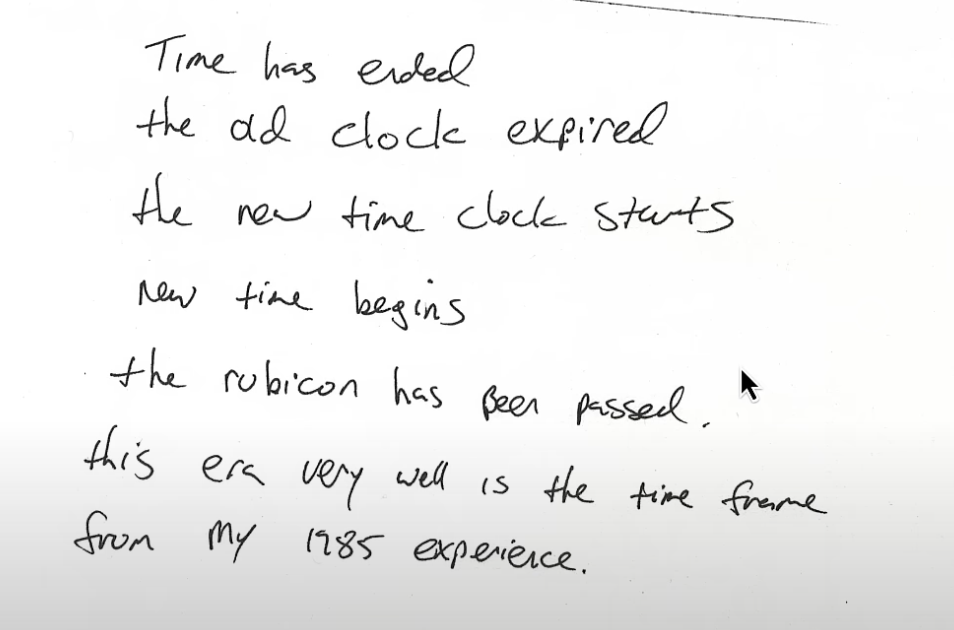 Time has ended
the old clock expired
the new time clock starts
New time begins
the rubicon has been passed.
this era very well is the time frame
from my 1985 experience.